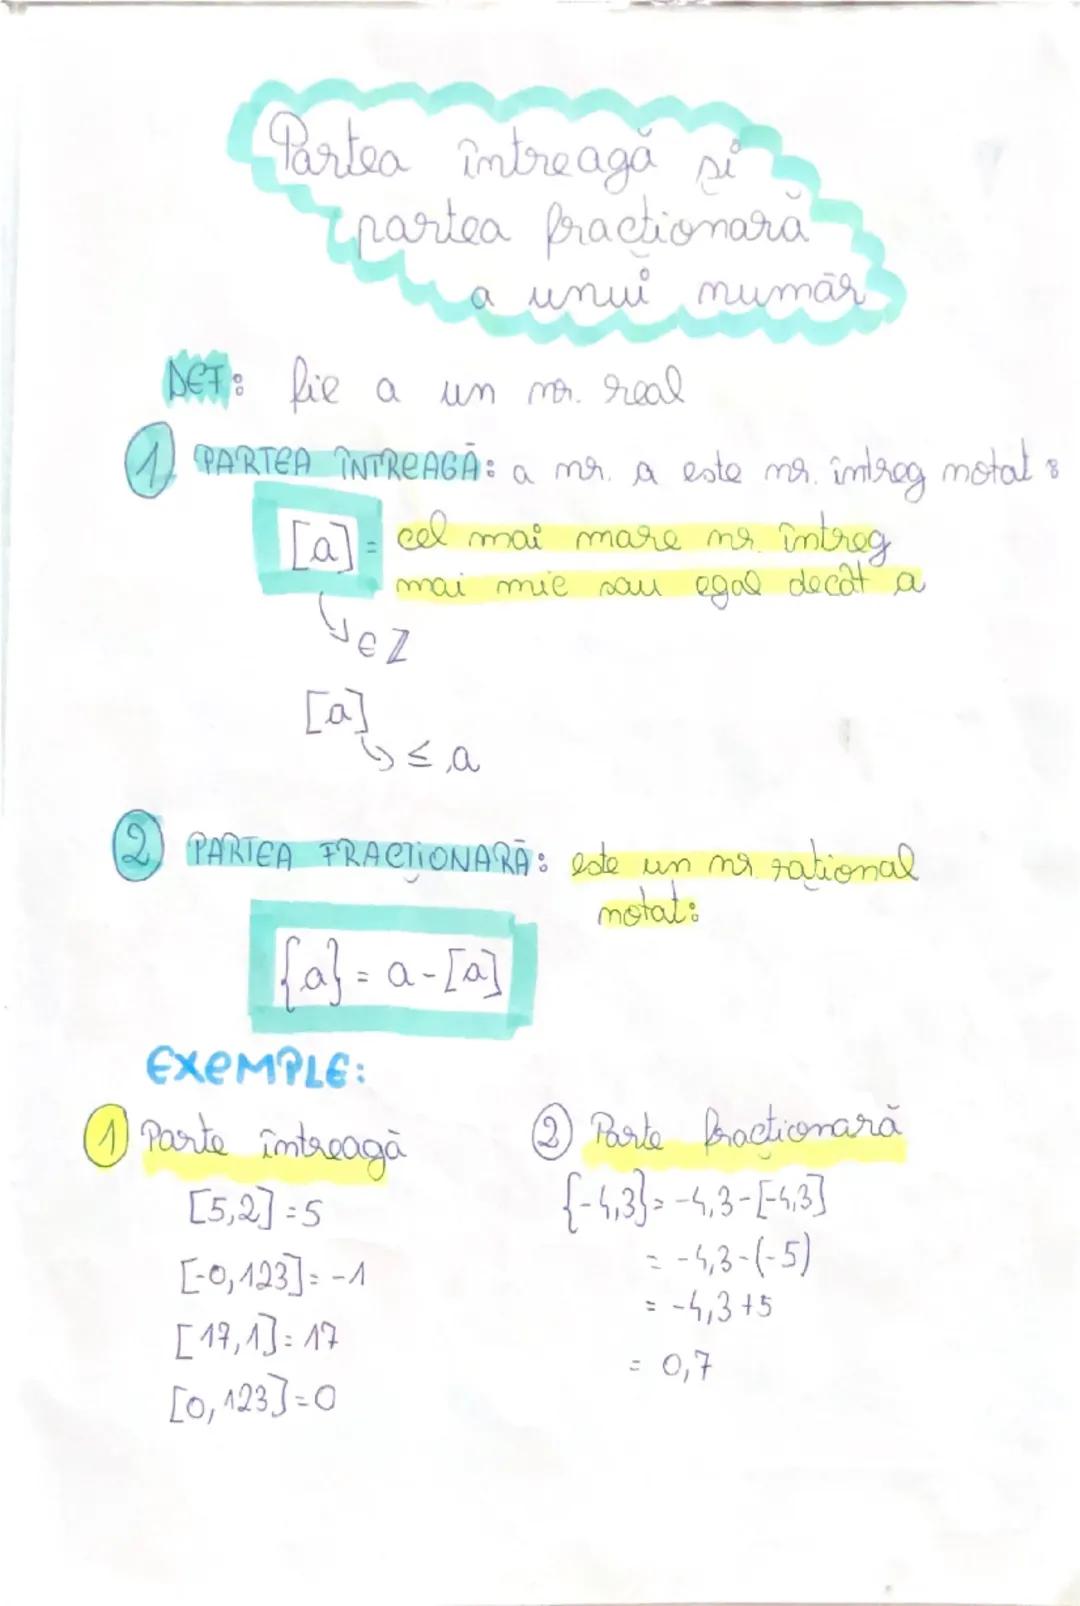 Partea întreagă și
partea fracționară
a unui număr
DEF: fie a un nr. real
1 PARTEA ÎNTREAGĂ: a nr. a este nr. întreg notat:
[a] = cel mai mare nr. întreg
mai mic sau egal decât a
∈ Z
[a]
≤ a
2 PARTEA FRACȚIONARĂ: este un nr. rațional
notat:
{a} = a - [a]
EXEMPLE:
1 Parte întreagă
[5,2] = 5
[-0,123] = -1
[17,1] = 17
[0,123] = 0
2 Parte fracționară
{-4,3} = -4,3 - [-4,3]
= -4,3 - (-5)
= -4,3 + 5
= 0,7